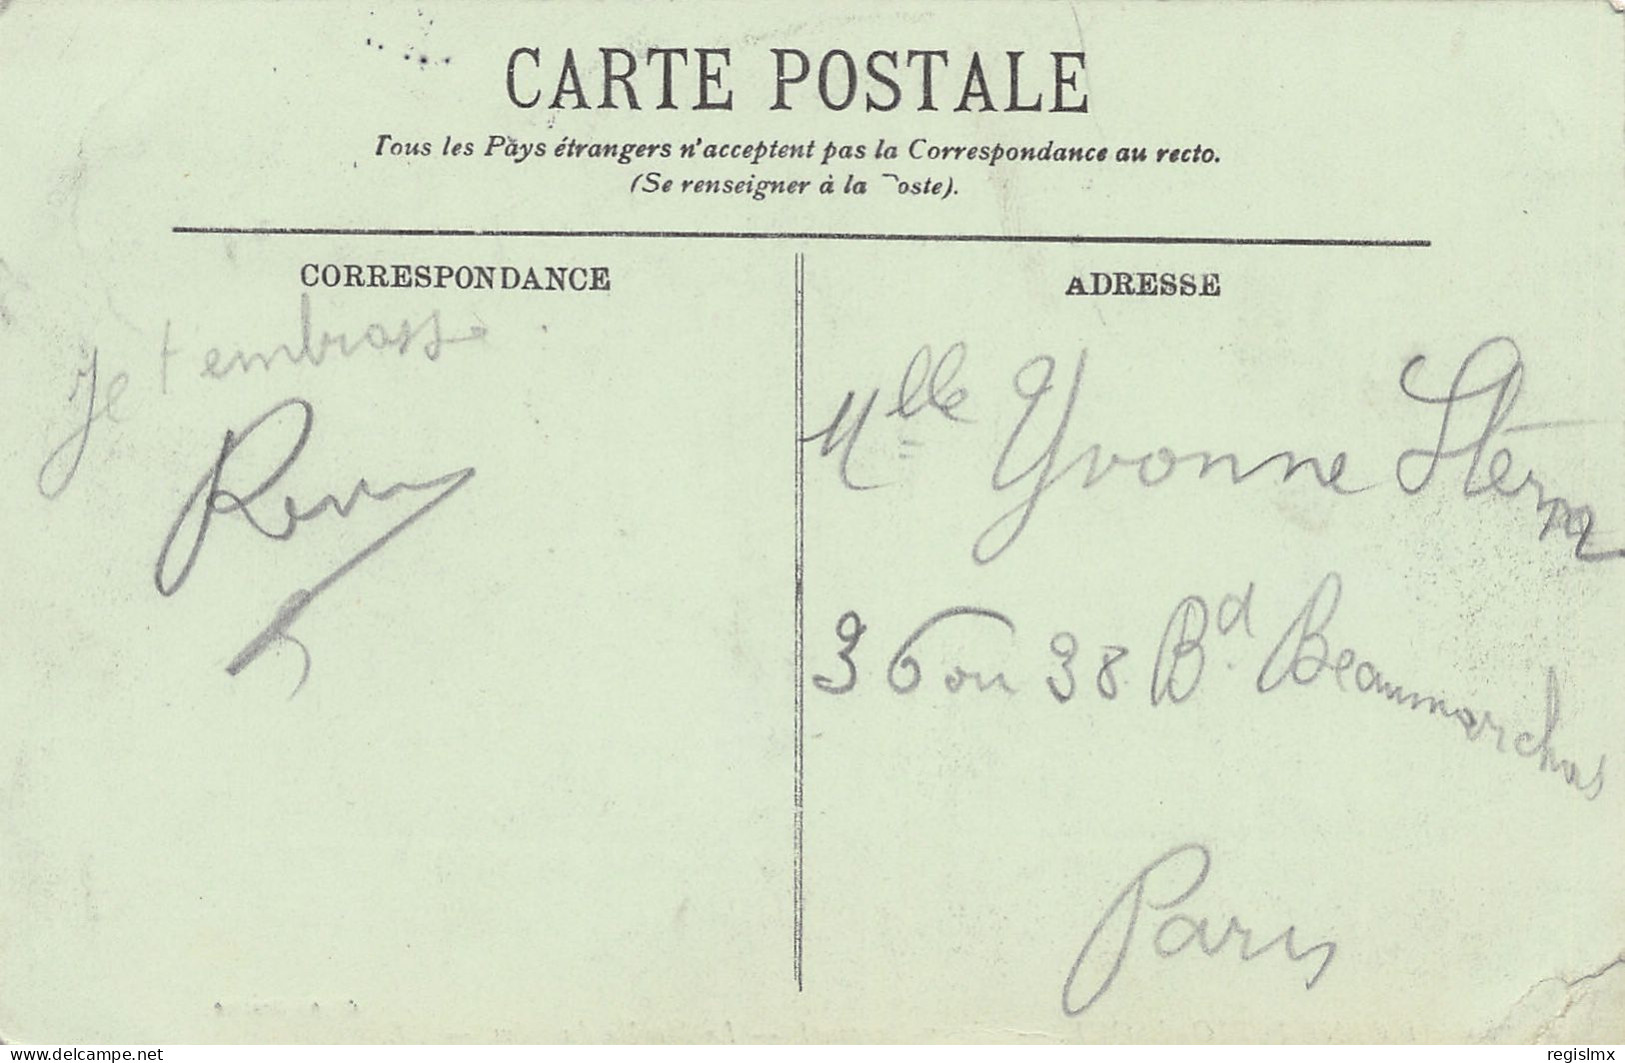 CARTE POSTALE
Tous les Pays étrangers n'acceptent pas la Correspondance au recto.
(Se renseigner à la Poste).
CORRESPONDANCE
ADRESSE
Je t'embrasse
Mlle Yvonne Stern
36 ou 38 Bd. Beaumarchais
Paris
www.delcampe.net
regislmx